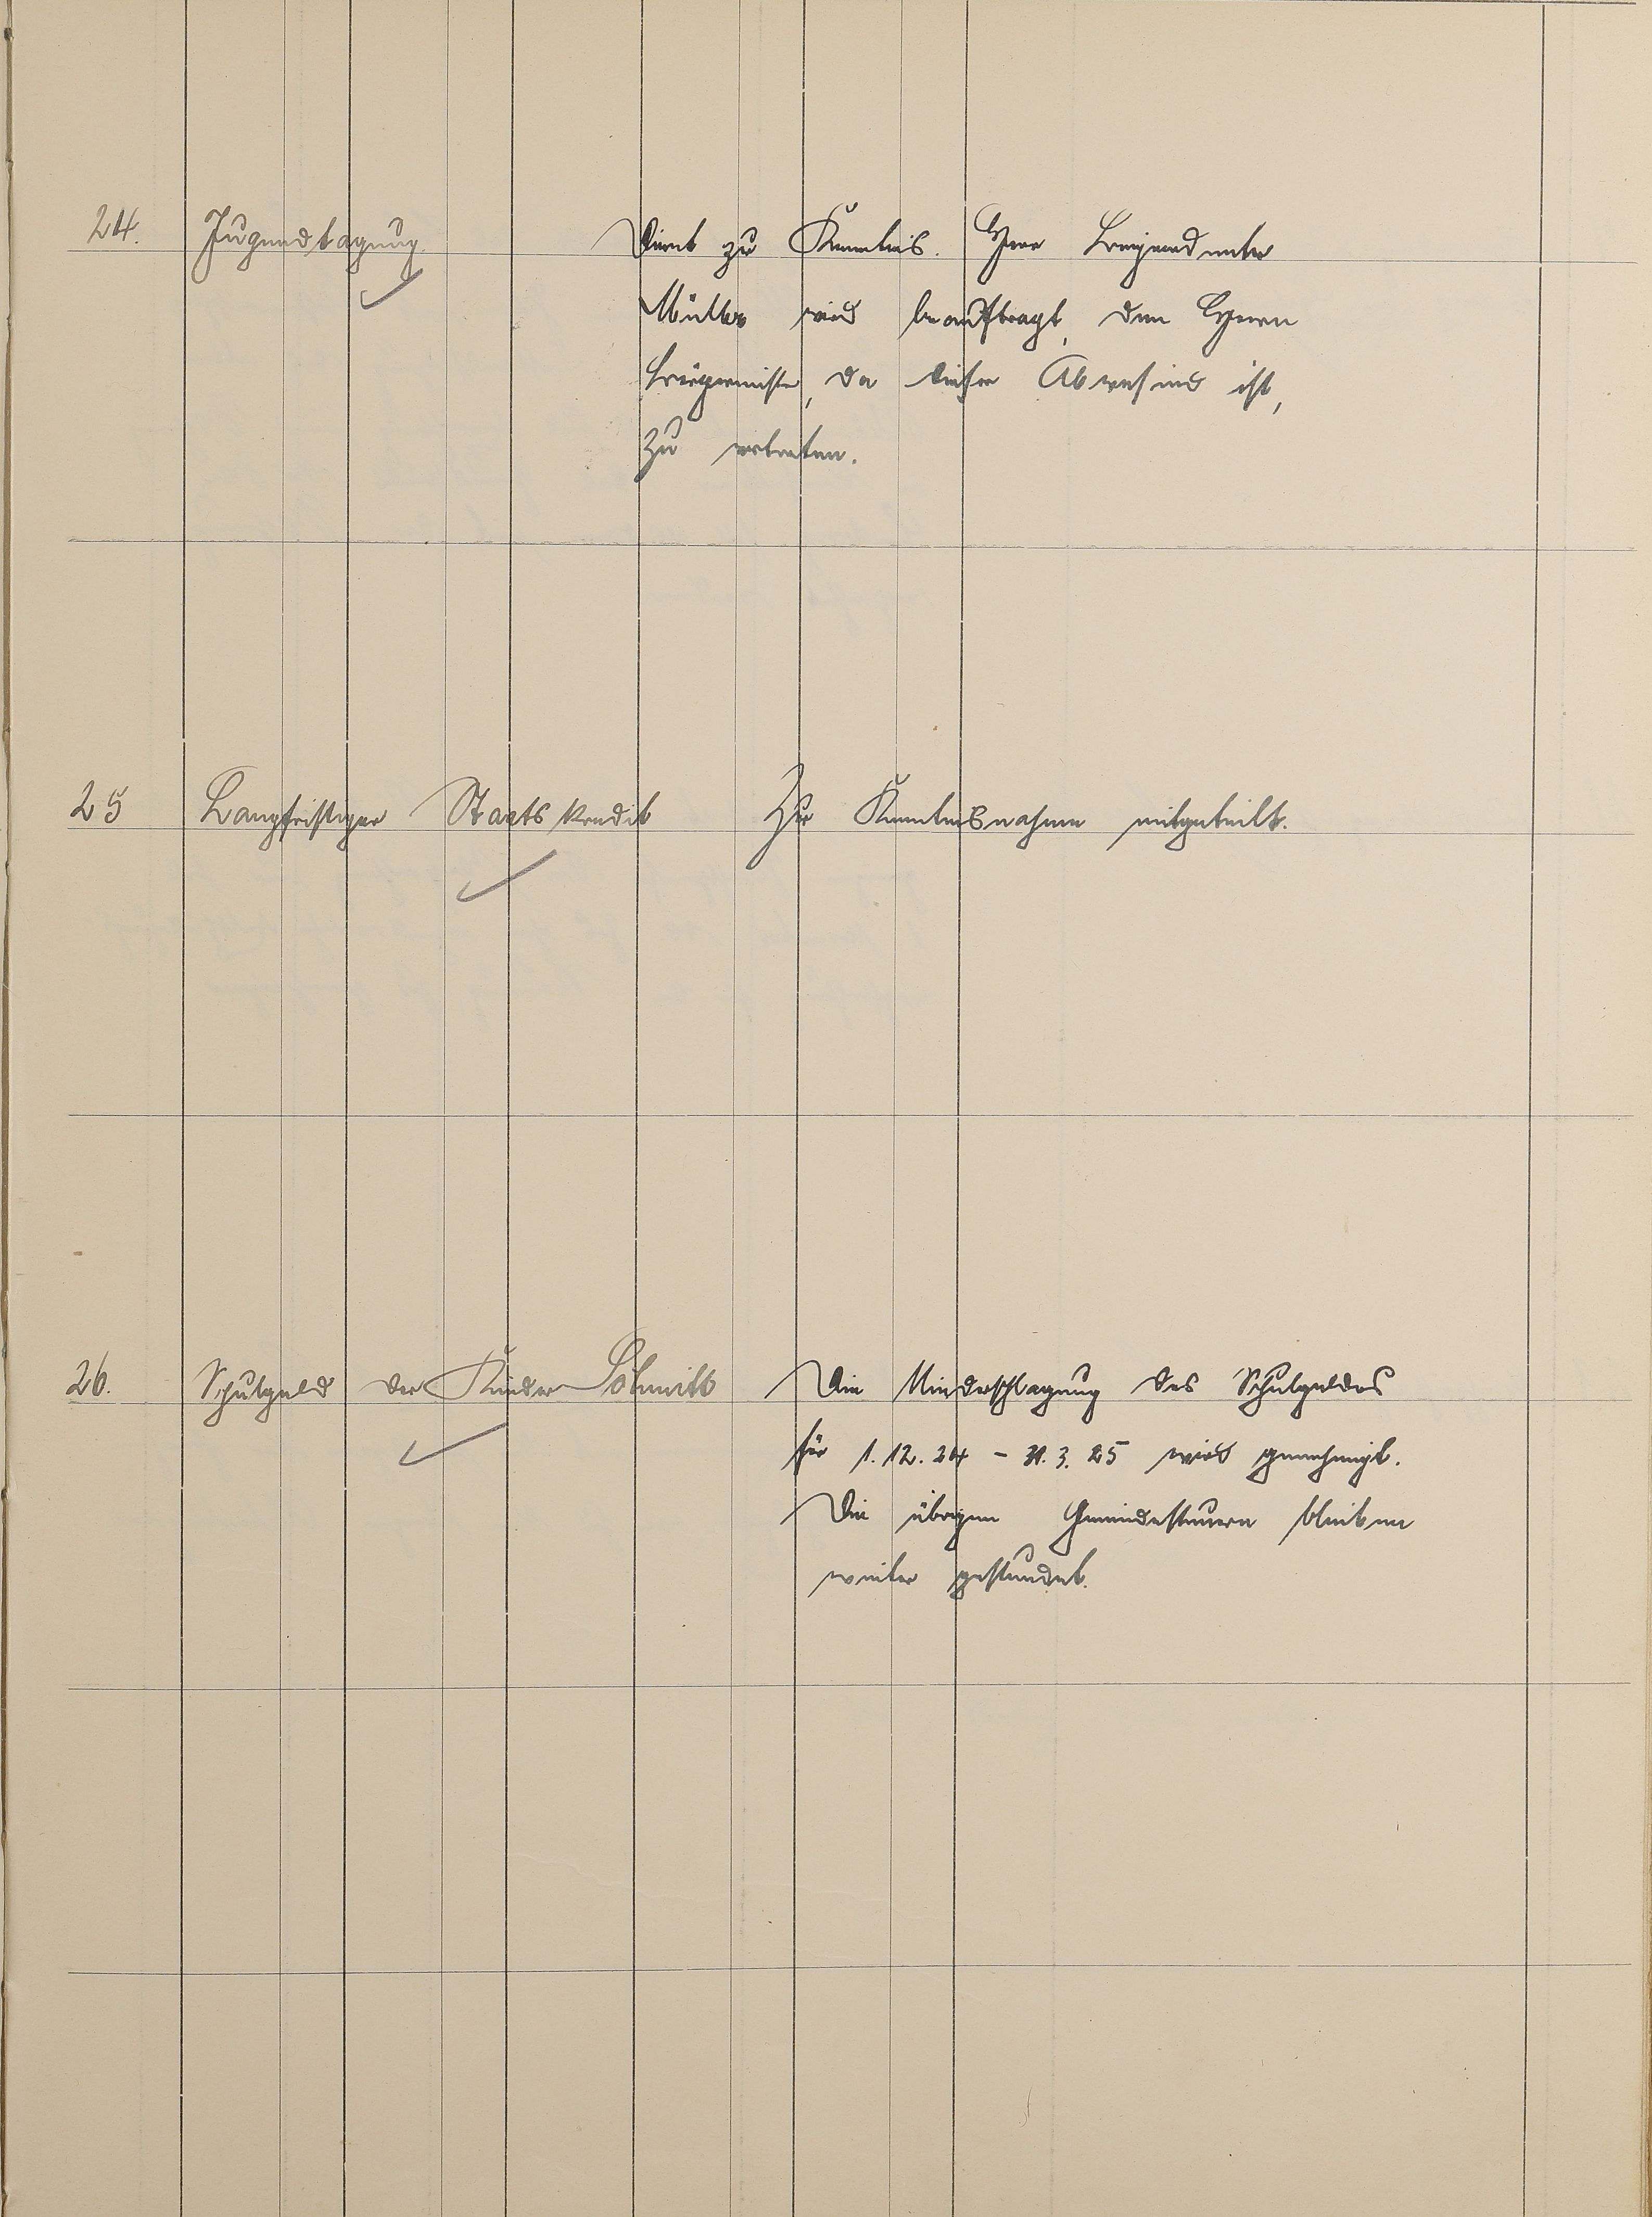 24. Jugendtagung. Dient zu Kenntnis. Herr Beigeordneter
Müller wird beauftragt, den Herrn
Bürgermeister, da dieser Abwesend ist,
zu vertreten.
25 Langfristiger Staatskredit Zur Kenntnisnahme mitgeteilt.
26. Schulgeld der Kinder Schmitt Die Niederschlagung des Schulgeldes
für 1.12.24 - 31.3.25 wird genehmigt.
Die übrigen Gemeindesteuern bleiben
weiter gestundet.